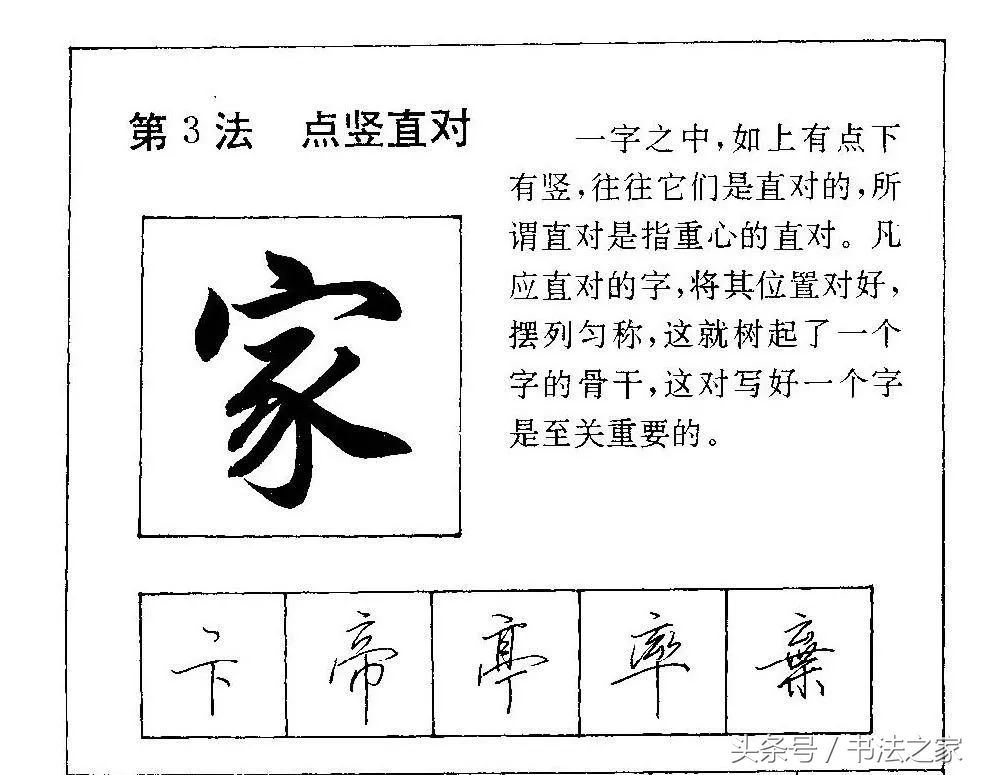 第3法 点竖直对
一字之中,如上有点下
有竖,往往它们是直对的,所
谓直对是指重心的直对。凡
应直对的字,将其位置对好,
摆列匀称,这就树起了一个
字的骨干,这对写好一个字
是至关重要的。
家
卞 帝 亭 率 棄
头条号 / 书法之家